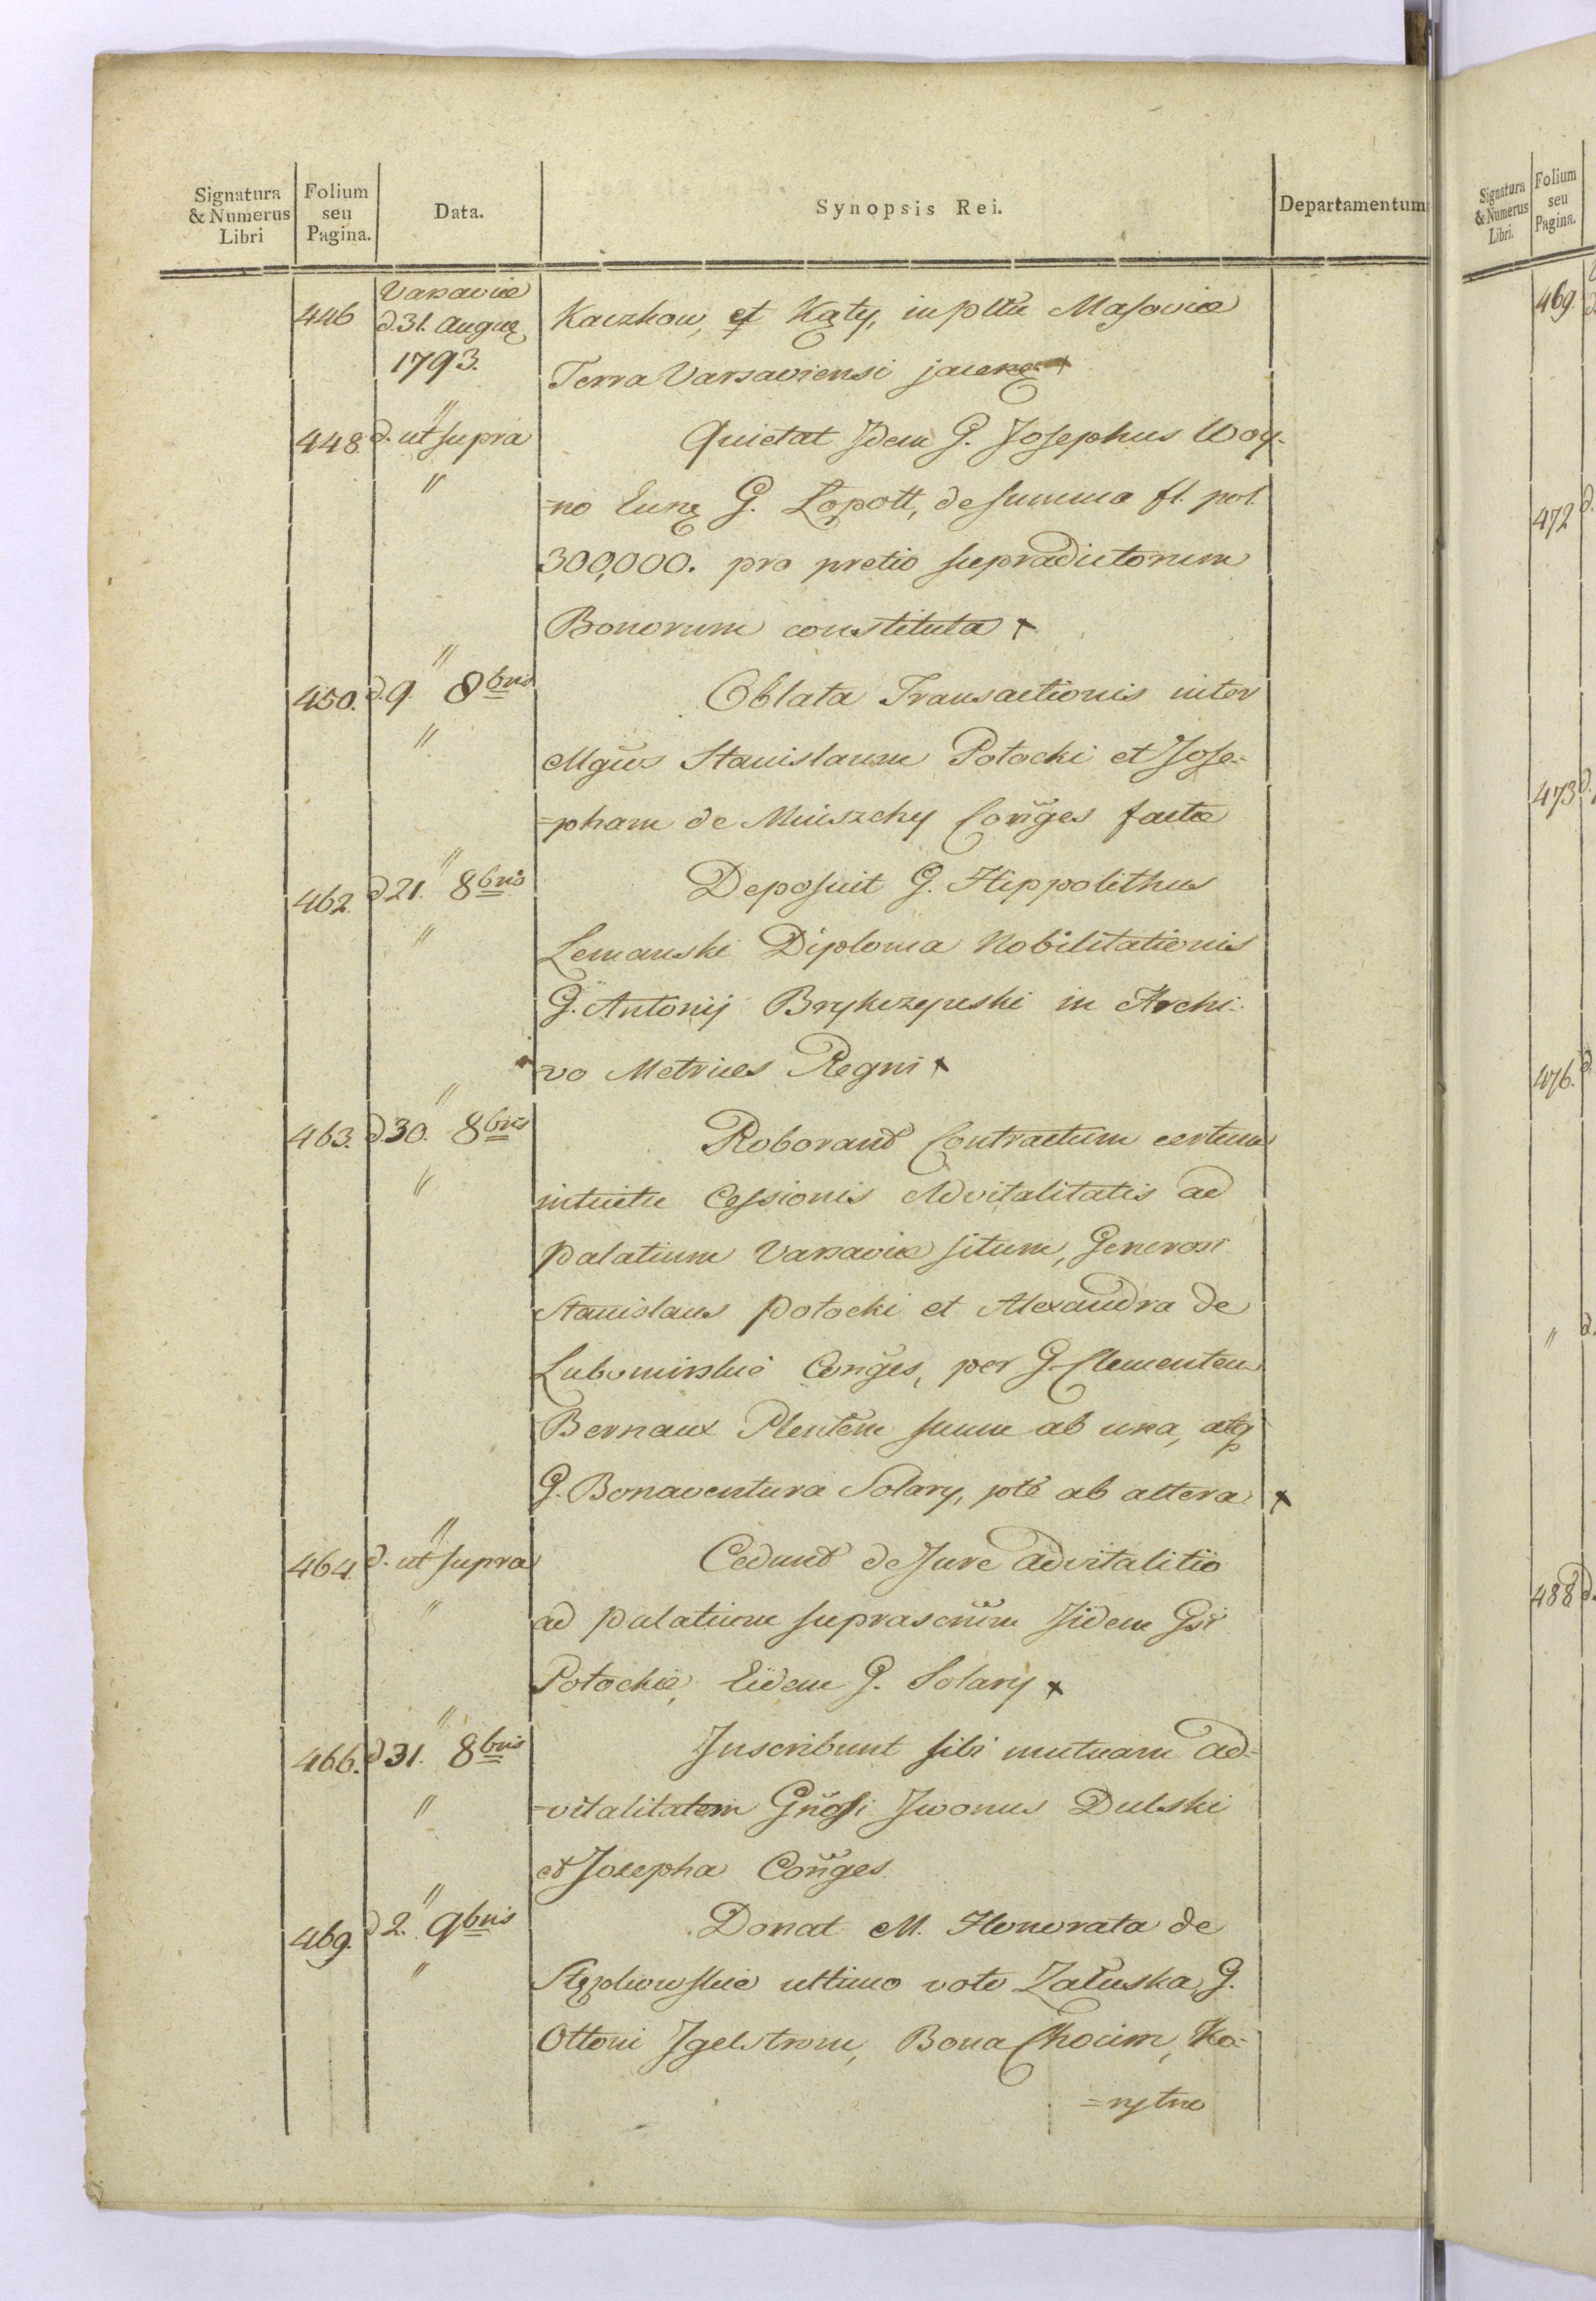 Signatura & Numerus Libri | Folium seu Pagina. | Data. | Synopsis Rei. | Departamentum
446 Varsaviæ
d. 31. Augus
1793.
Kaczkow, et Kąty, in pttu Masoviæ
Terra Varsaviensi jacen
448. d. ut supra
Quietat Idem G. Josephus Woy-
=no G. Lopott, de summa fl. pol.
300,000. pro pretio supradictorum
Bonorum constituta
450. d. 9. 8bris
Oblata Transactionis inter
Mgcos Stanislaum Potocki et Jose-
=pham de Mniszchy Conges factæ
462. d. 21. 8bris
Deposuit G. Hippolithus
Lemanski Diploma Nobilitationis
G. Antonij Brykczynski in Archi-
vo Metrices Regni
463. d. 30. 8bris
Roborant Contractum certum
intuitu Cessionis Advitalitatis ad
Palatium Varsaviæ situm, Generosi
Stanislaus Potocki et Alexandra de
Lubomirskie Conges, per G. Clementem
Bernaux Plentem suum ab una, atq
G. Bonaventura Solary, pte ab altera
464. d. ut supra
Cedunt de Jure advitalitio
ad Palatium suprascrium Jidem Gsi
Potockie, Eidem G. Solary
466. d. 31. 8bris
Inscribunt sibi mutuam ad-
=vitalitatem Gnosi Iwonus Dulski
et Josepha Conges
469. d. 2. 9bris
Donat M. Honorata de
Stępkowskie ultimo voto Załuska, G.
Ottoni Igelstrom, Bona Chocim, Ko-
=rytne
Signatura & Numerus Libri. | Folium seu Pagina.
469.
472
473
476.
"
488